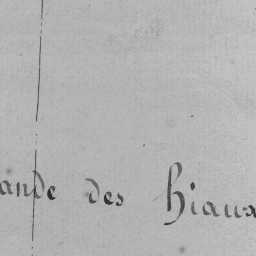 ande des hiaux